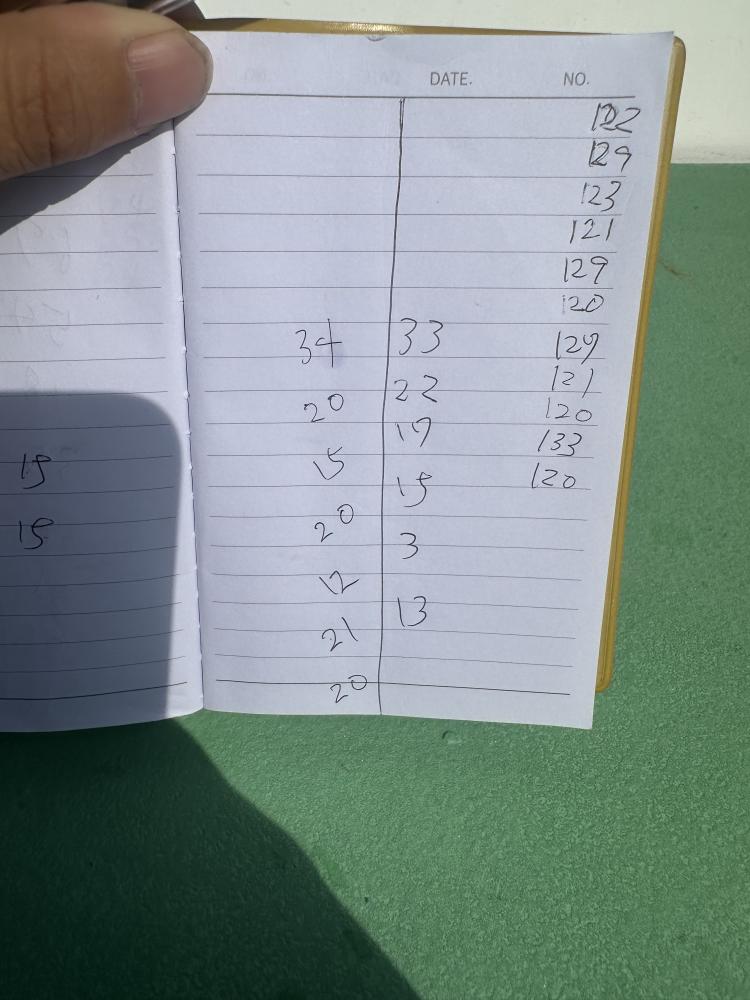 DATE. NO.
122
129
123
121
129
120
34 33 129
22 121
20 120
19 133
15 15 120
15
20 3
15
12 13
21
20